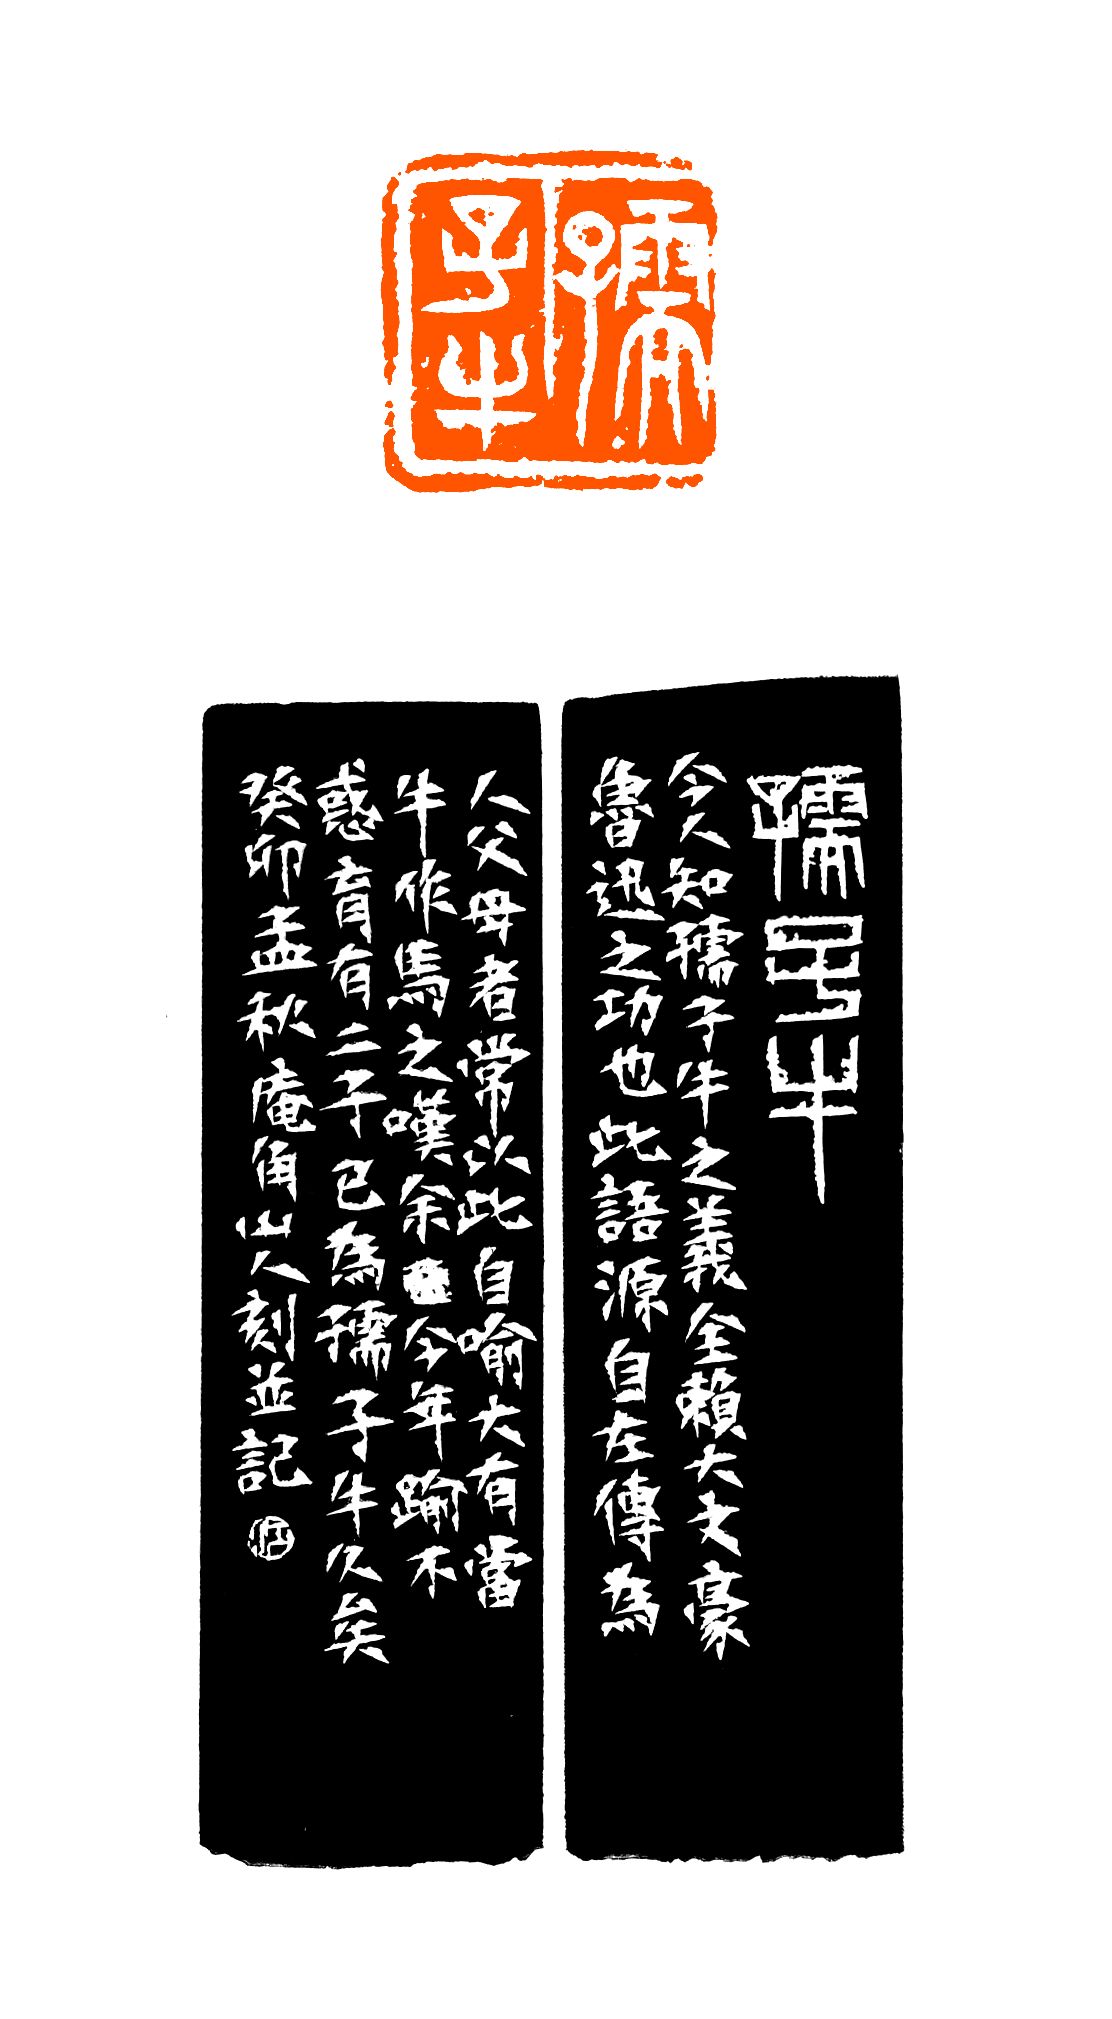 孺
子牛
孺子牛
今人知孺子牛之義全賴大文豪
魯迅之功也此語源自左傳為
人父母者常以此自喻大有當
牛作馬之嘆余今年踰不
惑育有二子已為孺子牛久矣
癸卯孟秋庵角山人刻並記